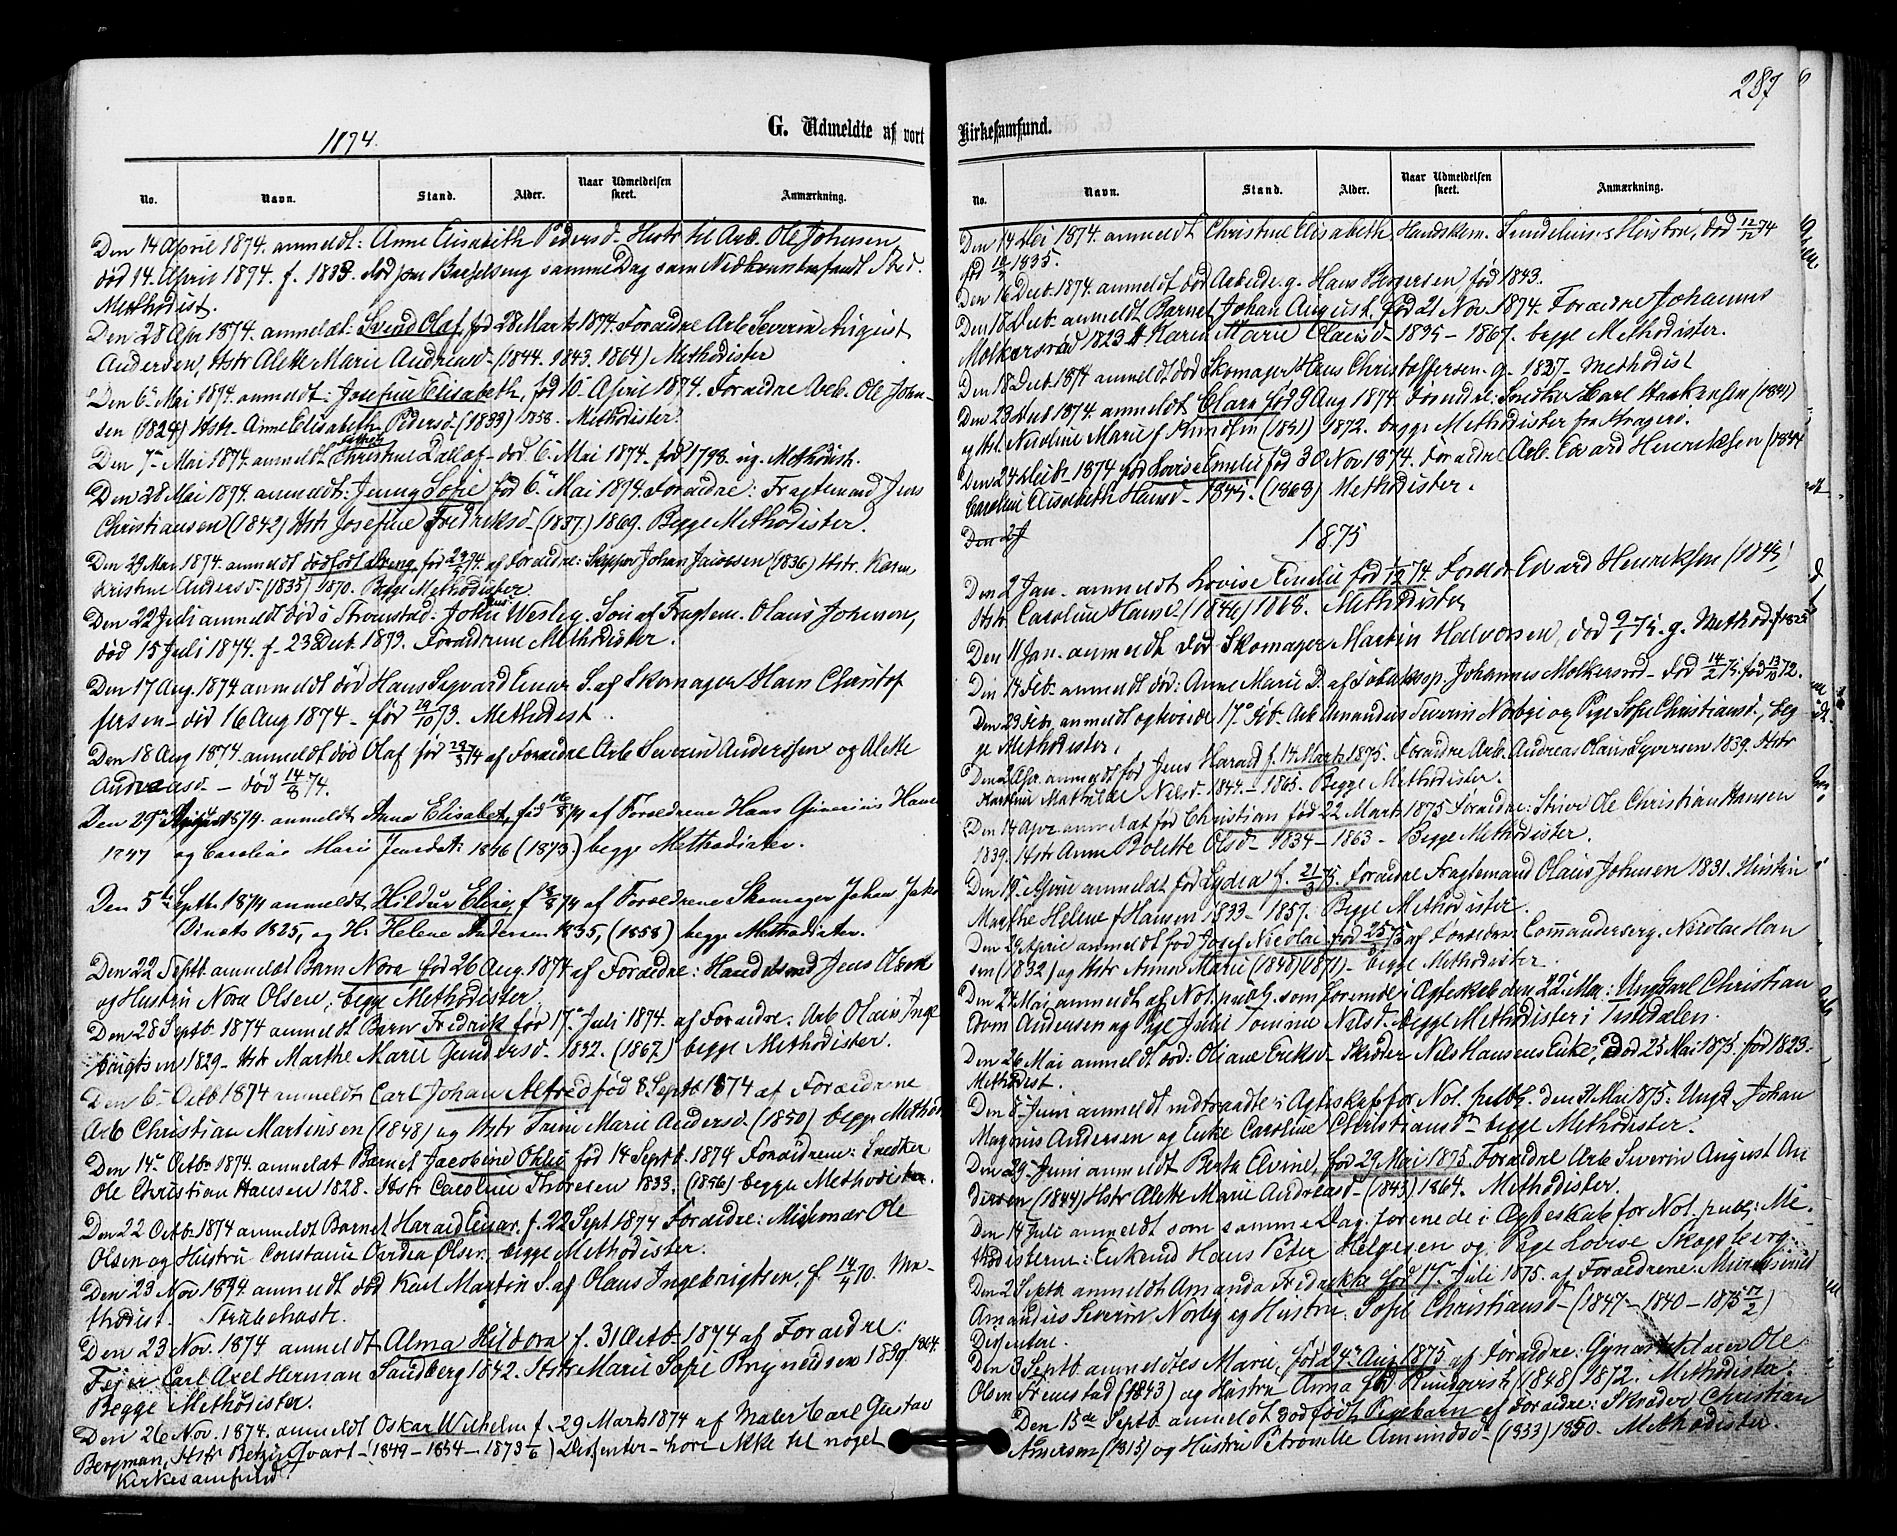 1874.
G. Udmeldte af vort
No. Navn. Stand. Alder. Naar Udmeldelsen skeet. Anmærkning.
Den 14 April 1874. anmeldt: Anne Elisabeth Pedersd. Hstr til Arb. Ole Johnsen,
død 14. April 1874. f. 1833. død paa Barselseng samme Dag som Nedkomst fandt Sted.
Methodist.
Den 28 Apr 1874. anmeldt: Svend Olaf, fød 28 Marts 1874. Foræidre Arb Severin August
Andersen, Hstr Alette Marie Andreasd - (1844. 1843. 1864) Methodister
Den 6te Mai 1874. anmeldt: Josefine Elisabeth, fød 10 April 1874. Foræidre Arb. Ole John-
sen (1824) Hstr. Anne Elisabeth Pedersd (1833) 1858. Methodister.
Den 7de Mai 1874. anmeldt Christine død 6 Mai 1874. fød 1798. ug. Methodist.
Den 28 Mai 1874. anmeldt: Jenny Sofie fød 6 Mai 1874. Foræidre: Fragtemand Jens
Christiansen (1842) Hstr Josefine Fredriksd - (1837) 1869. Begge Methodister.
Den 29 Mai 1874. anmeldt dødfødt Dreng, født af Foræidre: Skipper Johan Jacobsen (1836) Hstr. Karen
Kristine Andersd. (1835) 1870. Begge Methodister
Den 22 Juli anmeldt død i Strømstad: John Wesley. Søn af Fragtem. Olaus Johnsen,
død 15 Juli 1874. f. 23 Decb. 1873. Foræidrene Methodister.
Den 17 Aug. 1874. anmeldt død Hans Sigvard Einar S. af Skomager Hans Christof
fersen - død 16 Aug 1874 - fød 29/10 73. Methodist.
Den 18 Aug 1874 anmeldt død Olaf fød 28/3 74 af Foræidre Arb Severin Anderssen og Alette
Andreasd. - død 14/8 74.
Den 29de August 1874. anmeldt Anna Elisabet, fød 16/8 74 af Forældrene Hans Hans
1847 og Caroline Marie Jensdat: 1846 (1873) begge Methodister.
Den 5te Septb. 1874 anmeldt, Hildur Elise, f 8/8 74 af Forældrene Skomager Johan Jak
Dinæts 1825, og H. Helene Andersen 1835, (1858) begge Methodister.
Den 22 Septb. anmeldt Barn Nora fød 26 Aug. 1874 af Foræidre: Handelsmd Jens Olsen
og Hustru Nora Olsen, begge Methodister.
Den 28 Septb. 1874 anmeldt Barn Fredrik fød 17. Juli 1874. af Foræidre. Arb Olaus Inge
brigtsen 1829 - Hstr Marthe Marie Gundersd. 1832. (1867) begge Methodister.
Den 6te Octb 1874 anmeldt Carl Johan Alfred fød 8 Septb 1874 af Foræidrene
Arb Christian Martinsen (1848) og Hstr Marie Andersd. (1850) begge Method
Den 14de Octb. 1874. anmeldt Barnet Jacobine Othlie fød 14 Septb. 1874 Foræidrene: Snedker
Ole Christian Hansen 1828. Hstr Caroline Thoresen 1833, (1856) begge Methodister.
Den 22 Octb 1874 anmeldt Barnet Harald Einar. f. 22 Sept 1874 Foræidre: Misionær Ole
Olsen og Hustru Constance Olsen. begge Methodister.
Den 23 Nov 1874. anmeldt død Karl Martin S. af Olaus Ingebrigtsen, f 14/4 70. Me-
thodist. Strubehoste.
Den 23 Nov. 1874 anmeldt Alma Hildora f. 31 Octb - 1874 af Foræidre:
Fejer Carl Axel Herman Sandberg 1842. Hstr Marie Sofie Brynildsen 1839. 1864.
Begge Methodister.
Den 26 Nov. 1874. anmeldt Oskar Wilhelm f. 29 Marts 1874 af Maler Carl Gustav
Bergman, Hstr Qvart - (1849 - 1854 - 1873) Dissenter - hører ikke til noget
Kirkesamfund
287
Kirkesamfund.
No. Navn. Stand. Alder. Naar Udmeldelsen skeet. Anmærkning.
Den 14 Dec 1874 anmeldt Christine Elisabeth, Handskem. Sundelius's Hustru, død 12/12 74
fød 1835.
Den 16 Decb. 1874 anmeldt død Arbeider g. Hans Birgersen fød 1843.
Den 18 Decb. anmeldt Barnet Johan August, fød 21 Nov. 1874. Foræidre Johannes
Molkersrød 1823. & Karen Marie Olausd - 1835 - 1867. begge Methodister.
Den 18 Decb 1874 anmeldt død Skomager Hans Christoffersen. g - 1827 - Methodist
Den 23 Decb 1874. anmeldt Clara fød 9 Aug 1874. Forældre: Snedker Carl Haakensen (1841)
og Hst. Nicoline Marie f. Amundsen (1851) 1872. begge Methodister fra Kragerø.
Den 24 Decb. 1874 fød Lovise Emelie fød 30 Nov 1874. Foræidre Arb. Edvard Henriksen (1844
Caroline Elisabeth Hansd - 1845. (1868) Methodister.
1875
Den 2 Jan. anmeldt Lovise Emelie fød Forældre Edvard Henriksen (1845)
Hstr Caroline Hansd. (1846) 1868. Methodister
Den 11 Jan. anmeldt død Skomager Martin Halvorsen, død 9/1 75. g. Methodist f 1825
Den 14 Feb. anmeldt død: Anne Marie D. af Johannes Molkersrød - død 14/2 75. fød 72.
Den 23 Feb. anmeldt og viede 17 Feb. Arb Amandus Severin Norby og Pige Sofie Christiansd, beg-
ge Methodister.
Den 2 Apr. anmeldt fød Jens Harald f. 14 Marts 1875. Foræidre Arb. Andreas Olaus Syversen 1839. Hstr
Martine Mathilde Nilsd - 1844 - 1865. Begge Methodister.
Den 14 Apr. anmeldt fød Christian fød 22 Marts 1875 Foræidre: Ole Christian Hansen
1839. Hstr Anne Bolette Olsd - 1834 - 1863 - Begge Methodister.
Den 19 April anmeldt fød Lydea f. 21/3 75. Foræidre Fragtemand Olaus Johnsen 1831. Hustru
Marthe Helene f. Hansen 1833 - 1857. Begge Methodister.
Den 29 April anmeldt fød Josef Nicolai fød 25/3 75 af Forældre Commandersrg. Nicolai Han
sen (1832) og Hstr Anna Marie (1845) (1871) - begge Methodister.
Den 24 Mai anmeldt af Not. publ. som forenede i Ægteskab den 22de Mai: Ungkarl Christian
Edvin Andersen og Pige Julie Tomine Nilsd. begge Methodister i Tistedalen.
Den 26 Mai anmeldt død: Oliane Eriksd - Skræder Nils Hansens Enke, død 25 Mai 1875. fød 1823.
Methodist.
Den 5 Juni anmeldt indtraadte i Ægteskab for Not. publ. den 31 Mai 1875. Ungk. Johan
Magnus Andersen og Enke Caroline Christiansdr begge Methodister.
Den 29 Juni anmeldt Berta Elvine, fød 29 Mai 1875. Foræidre Arb Severin August An
dersen (1844) Hstr Alette Marie Andreasd. - (1843) 1864. Methodister.
Den 14 Juli anmeldt som samme Dag forenede i Ægteskab for Not. publ: Me-
thodisterne: Enkemd Hans Peter Helgesen og Pige Lovise Skogberg.
Den 2 Septb. anmeldt Amanda Fredrikke fød 17 Juli 1875. af Foræidrene. Muursvend
Amandus Severin Norby og Hustru. Sofie Christiansd - (1847 - 1840 - 1875 17/2)
Dissentere.
Den 3 Septb. anmeldtes Marie, fød 24de Aug 1875 af Forældre: Ole
Olsen (1843) og Hustru Anna fød Rundqvist (1848) 1872. Methodister.
Den 15de Septb. anmeldt dødfødt Pigebarn af Foræidre: Skræder Christian
Andersen (1815) og Hustru Petronelle Amundsd - (1833) 1850. Methodister.